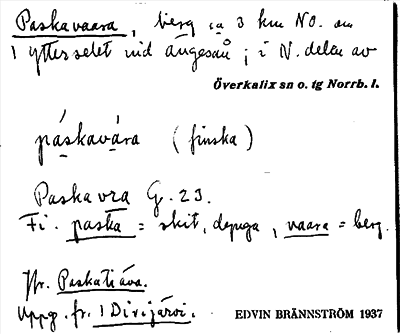 Paskavaara, berg ca 3 km NO. om
1 Ytterselet vid Ängesån; i N. delen av
Överkalix sn o. tg Norrb. l.
páskavára (finska)
Paskavra G. 23.
Fi. paska = skit, , vaara = berg.
Jfr. Paskatiäva.
Uppg. fr. 1 Dirijärvi.
EDVIN BRÄNNSTRÖM 1937